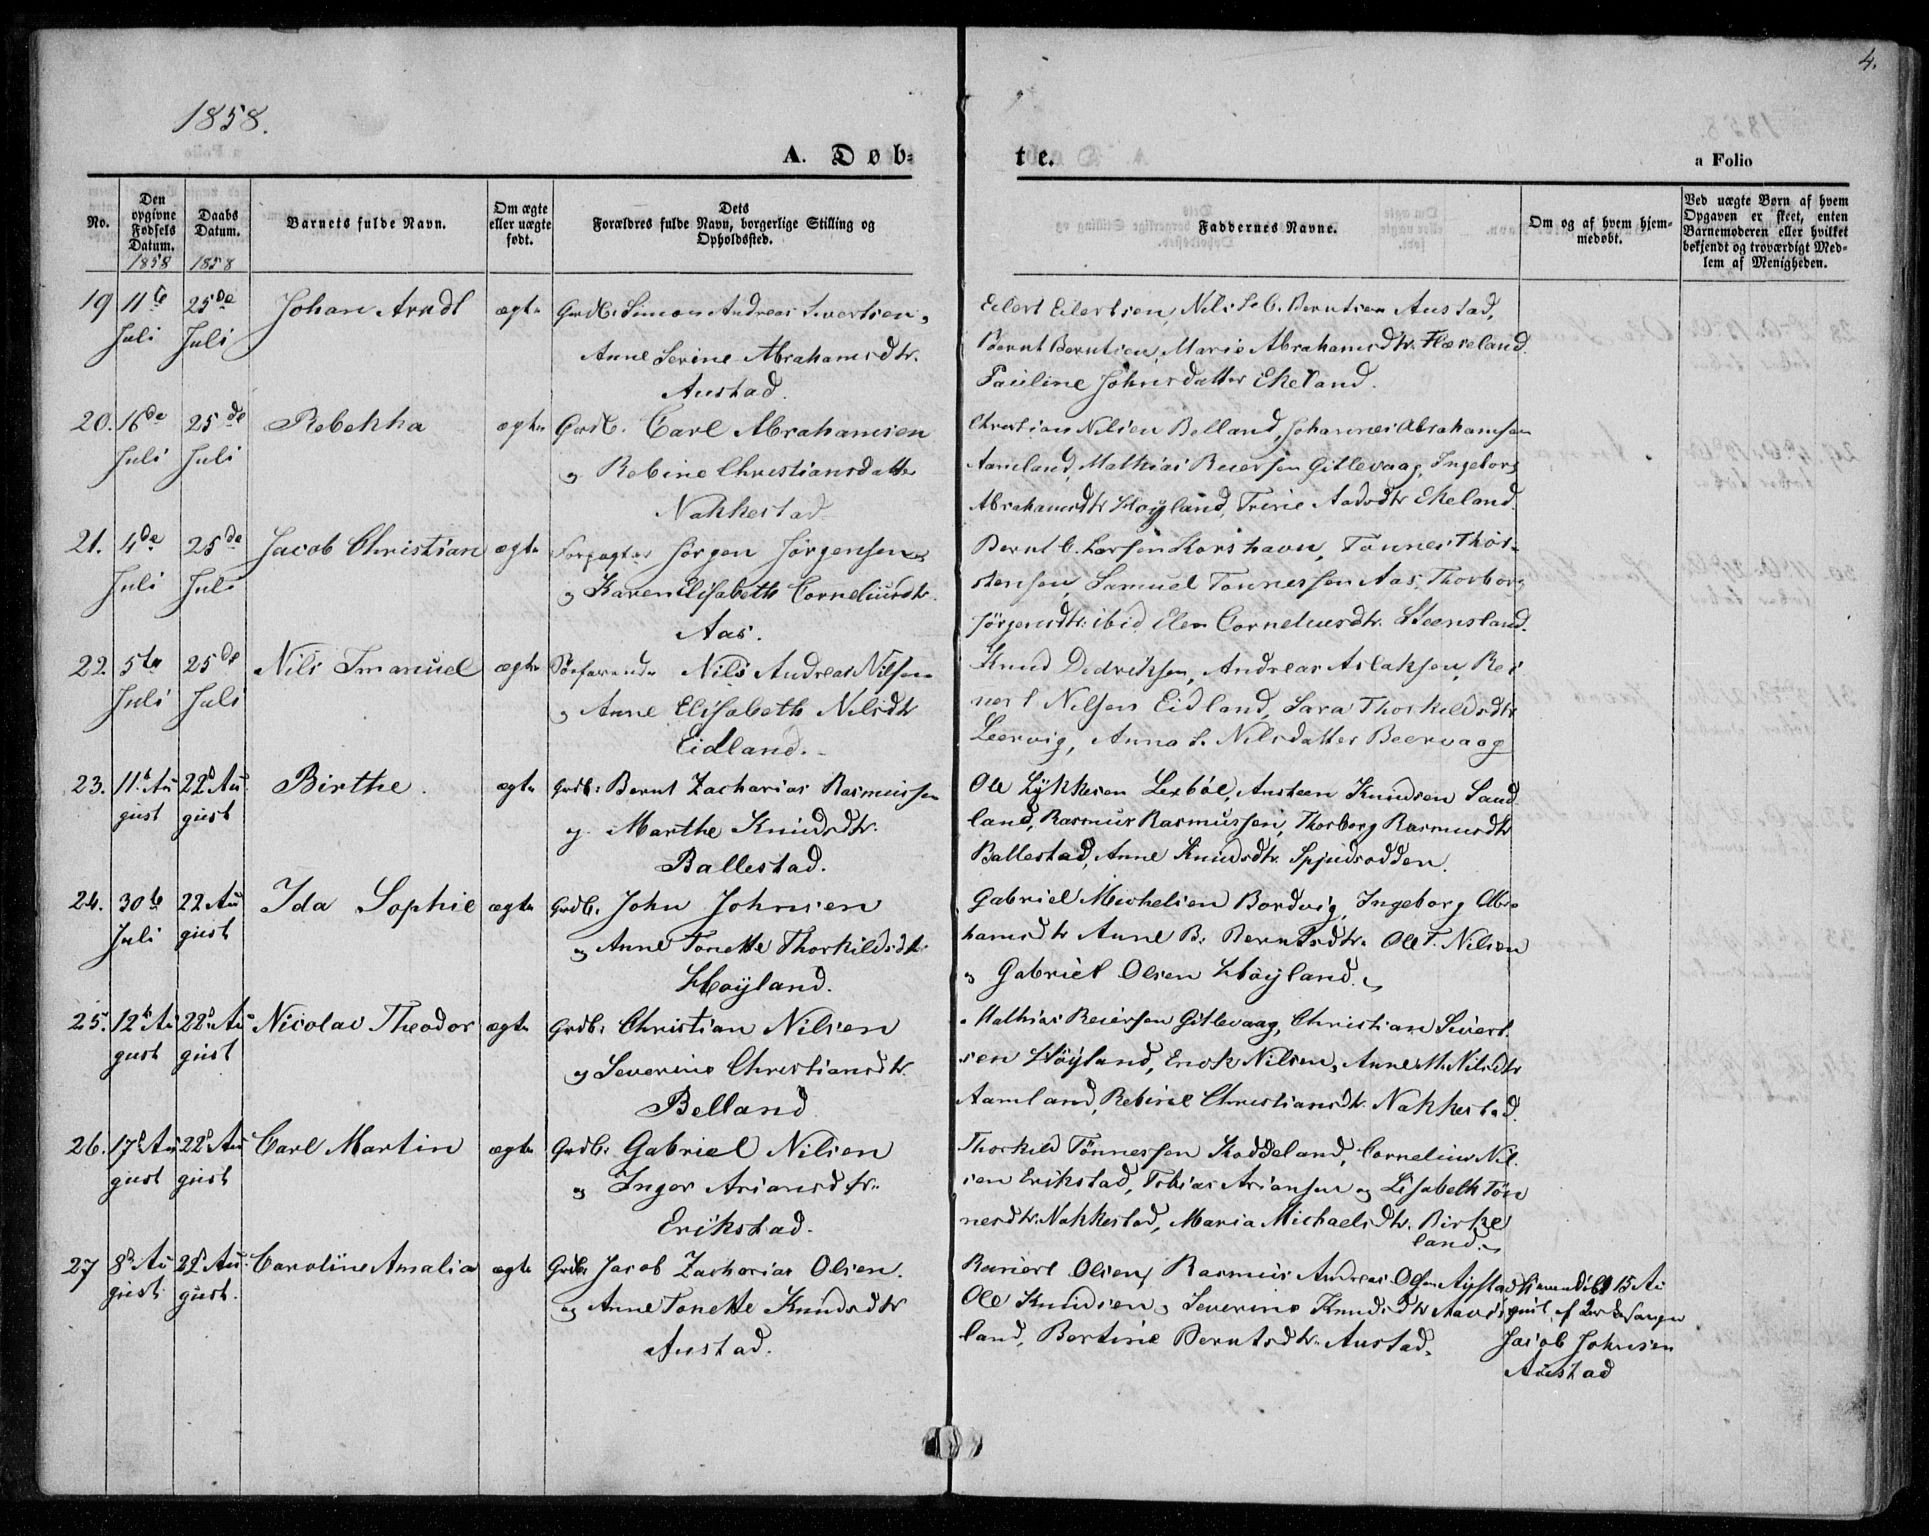 4.
1858.
A. Døb-
te.
a Folio
No.
Den opgivne Fødsels Datum.
1858
Daabs Datum.
1858
Barnets fulde Navn.
Om ægte eller uægte født.
Dets Forældres fulde Navn, borgerlige Stilling og Opholdssted.
Faddernes Navne.
Om og af hvem hjemmedøbt.
Ved uægte Børn af hvem Opgaven er skeet, enten Barnemoderen eller hvilket bekjendt og troværdigt Medlem af Menigheden.
19 11te Juli 25de Juli Johan Arndt ægte Grdb. Simon Andreas Sivertsen,
Anne Serine Abrahamsdtr.
Austad.
Eilert Eilertsen, Nils S. C. Berntsen Austad,
Bernt Berntsen, Marie Abrahamsdtr. Flæseland.
Pauline Johnsdatter Ekeland.
20. 16de Juli 25de Juli Rebekka ægte Grdb. Carl Abrahamsen
og Rebine Christiansdatter
Nakkestad
Christian Nilsen Belland, Johannes Abrahamsen
Aamland, Mathias Reiersen Gitlevaag, Ingeborg
Abrahamsdtr Høyland, Trine Aadsdtr Ekeland.
21. 4de Juli 25de Juli Jacob Christian ægte Forpagter Jørgen Jørgensen
og Karen Elisabeth Corneliusdtr.
Aas.
Bernt C. Larsen Korshavn, Tønnes Thor-
stensen, Samuel Tønnessen Aas, Thorborg
Jørgensdtr. ibid, Elen Corneliusdtr. Steensland.
22. 5te Juli 25de Juli Nils Imanuel ægte Søefarende Nils Andreas Nilsen
og Anne Elisabeth Nilsdtr
Eidland.
Knud Dedriksen, Andreas Aslaksen, Rei
nert Nilsen Eidland, Sara Thorkildsdtr
Leervig, Anna S. Nilsdatter Beervaag
23. 11t August 22d August Birthe. ægte Grdb: Bernt Zacharias Rasmussen
og Marthe Knudsdtr.
Ballestad.
Ole Lykkesen Lexbøe, Austeen Knudsen Sand
land, Rasmus Rasmussen, Thorborg Rasmusdtr
Ballestad, Anne Knudsdtr. Spjudsodden.
24. 30te Juli 22 August Ida Sophie ægte Grdb. John Johnsen
og Anne Tonette Thorkildsdtr.
Høyland.
Gabriel Michelsen Bordvig, Ingeborg Abra
hamsdtr Anne B. Berntsdtr. Ole T. Nilsen
og Gabriel Olsen Høyland.
25. 12t August 22d August Nicolai Theodor ægte Grdb. Christian Nilsen
og Severine Christiansdtr.
Belland
Mathias Reiersen Gitlevaag, Christian Sivert
sen Høyland, Enok Nilsen, Anne M. Nilsdtr
Aamland, Rebine Christiansdtr. Nakkestad.
26. 17d August 22d August Carl Martin ægte Grdb. Gabriel Nilsen
og Inger Ariansdtr.
Erikstad.
Thorkild Tönnessen Koddeland, Cornelius Nil
sen Erikstad, Tobias Ariansen og Lisabeth Tøn
nesdtr. Nakkestad, Maria Michaelsdtr. Birke
land.
27 8d August 22d August. Caroline Amalia ægte Grdb. Jacob Zacharias Olsen.
og Anne Tonette Knudsdtr
Austad.
Reinert Olsen, Rasmus Andreas Olsen Austad
Ole Knudsen, Severine Knudsdtr
land, Bertine Berntsdtr. Austad.
Hjemmedøbt 15 Au
gust af
Jacob Johnsen
Austad